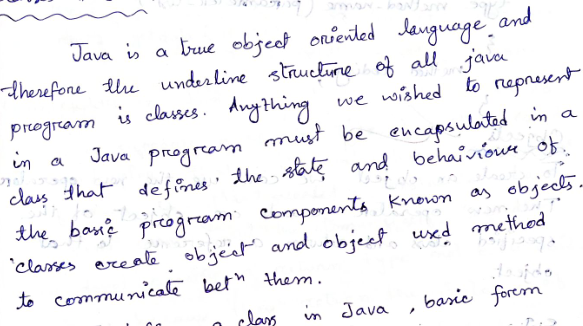 Java is a true object oriented language and
therefore the underline structure of all java
program is classes. Anything we wished to represent
in a Java program must be encapsulated in a
class that defines the state and behaiviour of
the basic program components known as objects.
classes create object and object used method
to communicate betn them.
a class in Java, basic form